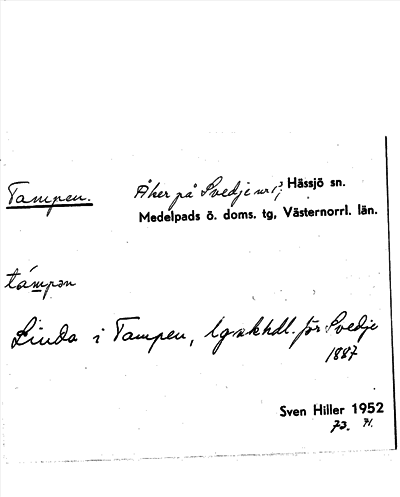 Tampen. Åker på Svedje nr 1; Hässjö sn.
Medelpads ö. doms. tg, Västernorrl. län.
támpən
Linda i Tampen, lgskhdl. för Svedje
1887
Sven Hiller 1952
73.